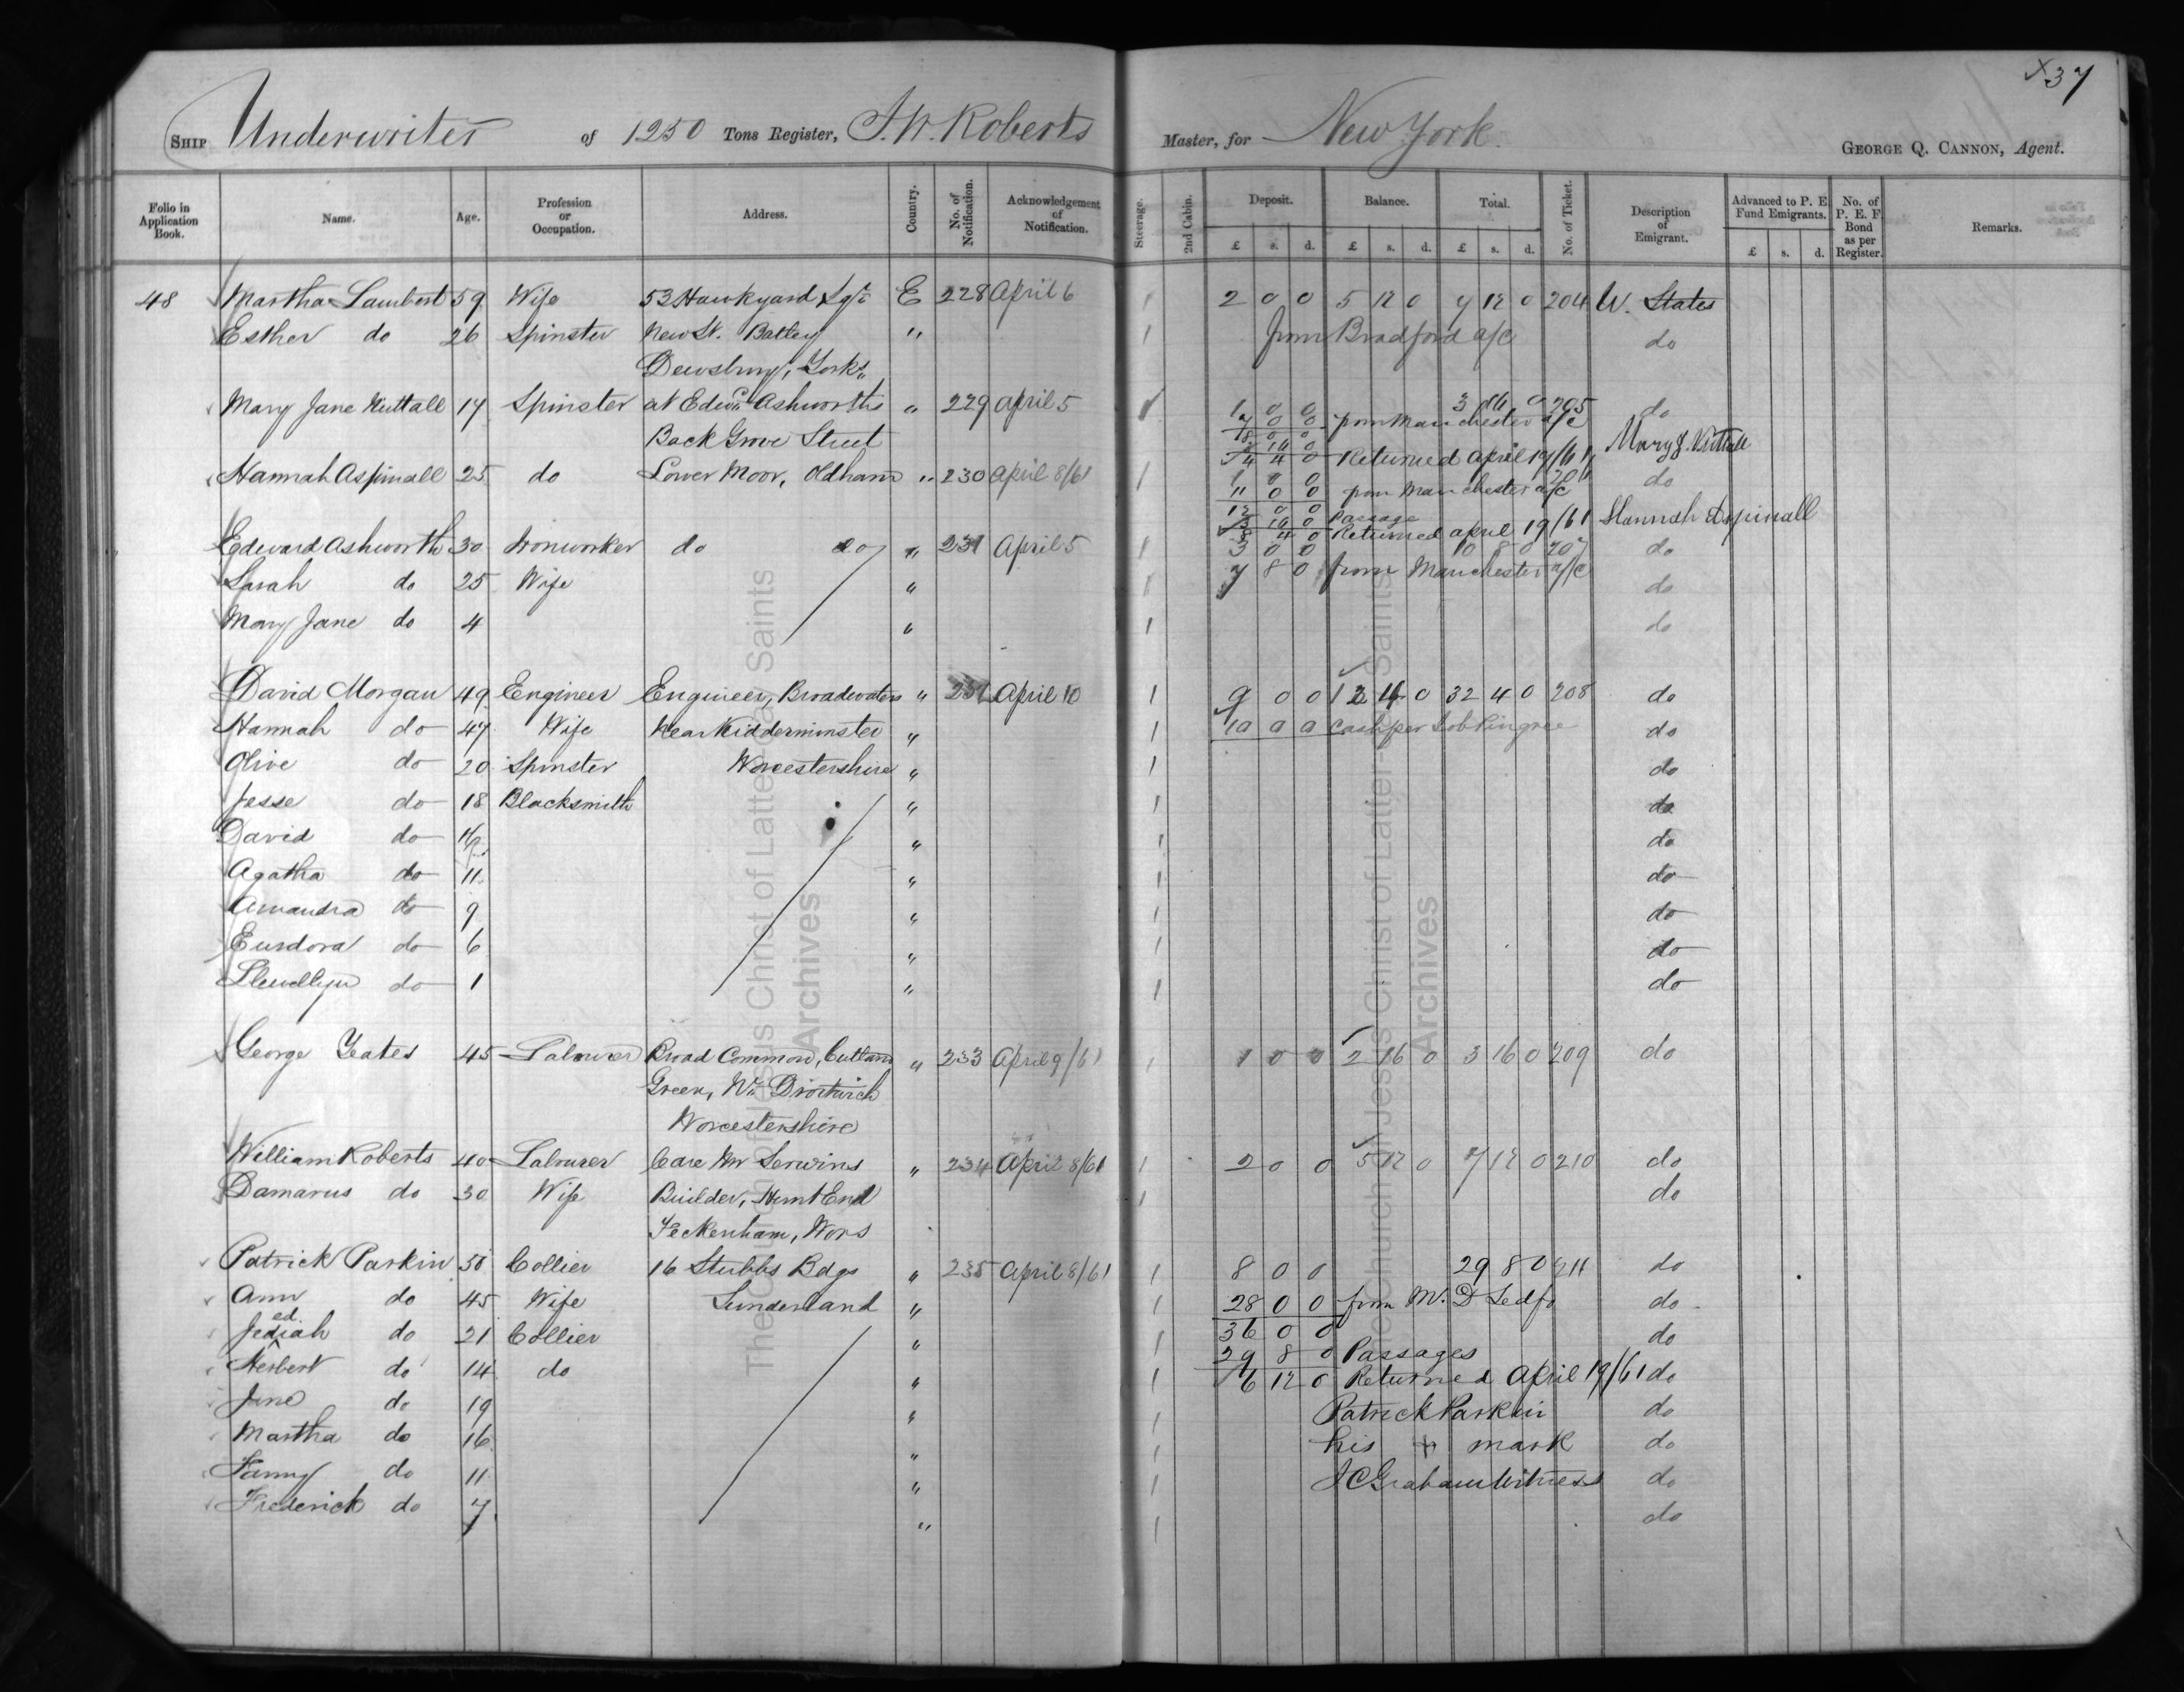 X37
SHIP Underwriter of 1250 Tons Register, J. W. Roberts Master, for New York. GEORGE Q. CANNON, Agent.
Folio in Application Book. Name. Age. Profession or Occupation. Address. Country. No. of Notification. Acknowledgement of Notification. Steerage. 2nd Cabin. Deposit. £ s. d. Balance. £ s. d. Total. £ s. d. No. of Ticket. Description of Emigrant. Advanced to P. E. Fund Emigrants. £ s. d. No. of P. E. F. Bond as per Register. Remarks.
48 Martha Lambert 59 Wife 53 Hawkyard E 228 April 6 1 2 0 0 5 12 0 7 12 0 204 U. States
Esther do 26 Spinster New St. Batley " 1 from Bradford a/c do
Dewsbury, Yorks,,
Mary Jane Nuttall 17 Spinster at Edwd Ashworths " 229 April 5 1 1 0 0 3 16 0 205 do
7 0 0 from Manchester a/c
Back Grove Street 8 0 0
3 16 0 Mary J. Nuttall
4 4 0 Returned April 19/61
Hannah Aspinall 25 do Lower Moor, Oldham " 230 April 8/61 1 1 0 0 do
11 0 0 from Manchester a/c
12 0 0
3 16 0 Passage
8 4 0 Returned April 19/61 Hannah Aspinall
Edward Ashworth 30 Ironworker do do " 231 April 5 1 3 0 0 10 8 0 207 do
Sarah do 25 Wife " 1 7 8 0 from Manchester a/c do
Mary Jane do 4 " 1 do
David Morgan 49 Engineer Engineer, Broadwaters " April 10 1 9 0 0 32 4 0 208 do
Hannah do 47 Wife Near Kidderminster " 1 10 0 0 Cash per Job Pingree do
Olive do 20 Spinster Worcestershire " 1 do
Jesse do 18 Blacksmith " 1 do
David do " 1 do
Agatha do 11 " 1 do
Amandra do 9 " 1 do
Eurdora do 6 " 1 do
Llewellyn do 1 " 1 do
George Yeates 45 Labourer Broad Common, Cuttans " 233 April 9/61 1 1 0 0 2 16 0 3 16 0 209 do
Green, Nr. Droitwich
Worcestershire
William Roberts 40 Labourer Care Mr Serwins " 234 April 8/61 1 2 0 0 5 12 0 7 12 0 210 do
Damarus do 30 Wife Builder, Hunt End 1 do
Feckenham, Wors
Patrick Parkin 50 Collier 16 Stubbs Bdgs " 235 April 8/61 1 8 0 0 29 8 0 211 do
Ann do 45 Wife Sunderland " 1 28 0 0 from W. D do
ed
Jediah do 21 Collier " 1 36 0 0 do
29 8 0 Passages
Herbert do 14 do " 1 6 12 0 Returned April 19/61 do
Jane do 19 " 1 Patrick Parkin do
Martha do 16 " 1 his + mark do
Fanny do 11 " 1 J C Graham Witness do
Frederick do 7 " 1 do
The Church of Jesus Christ of Latter-day Saints
Archives
The Church of Jesus Christ of Latter-day Saints
Archives